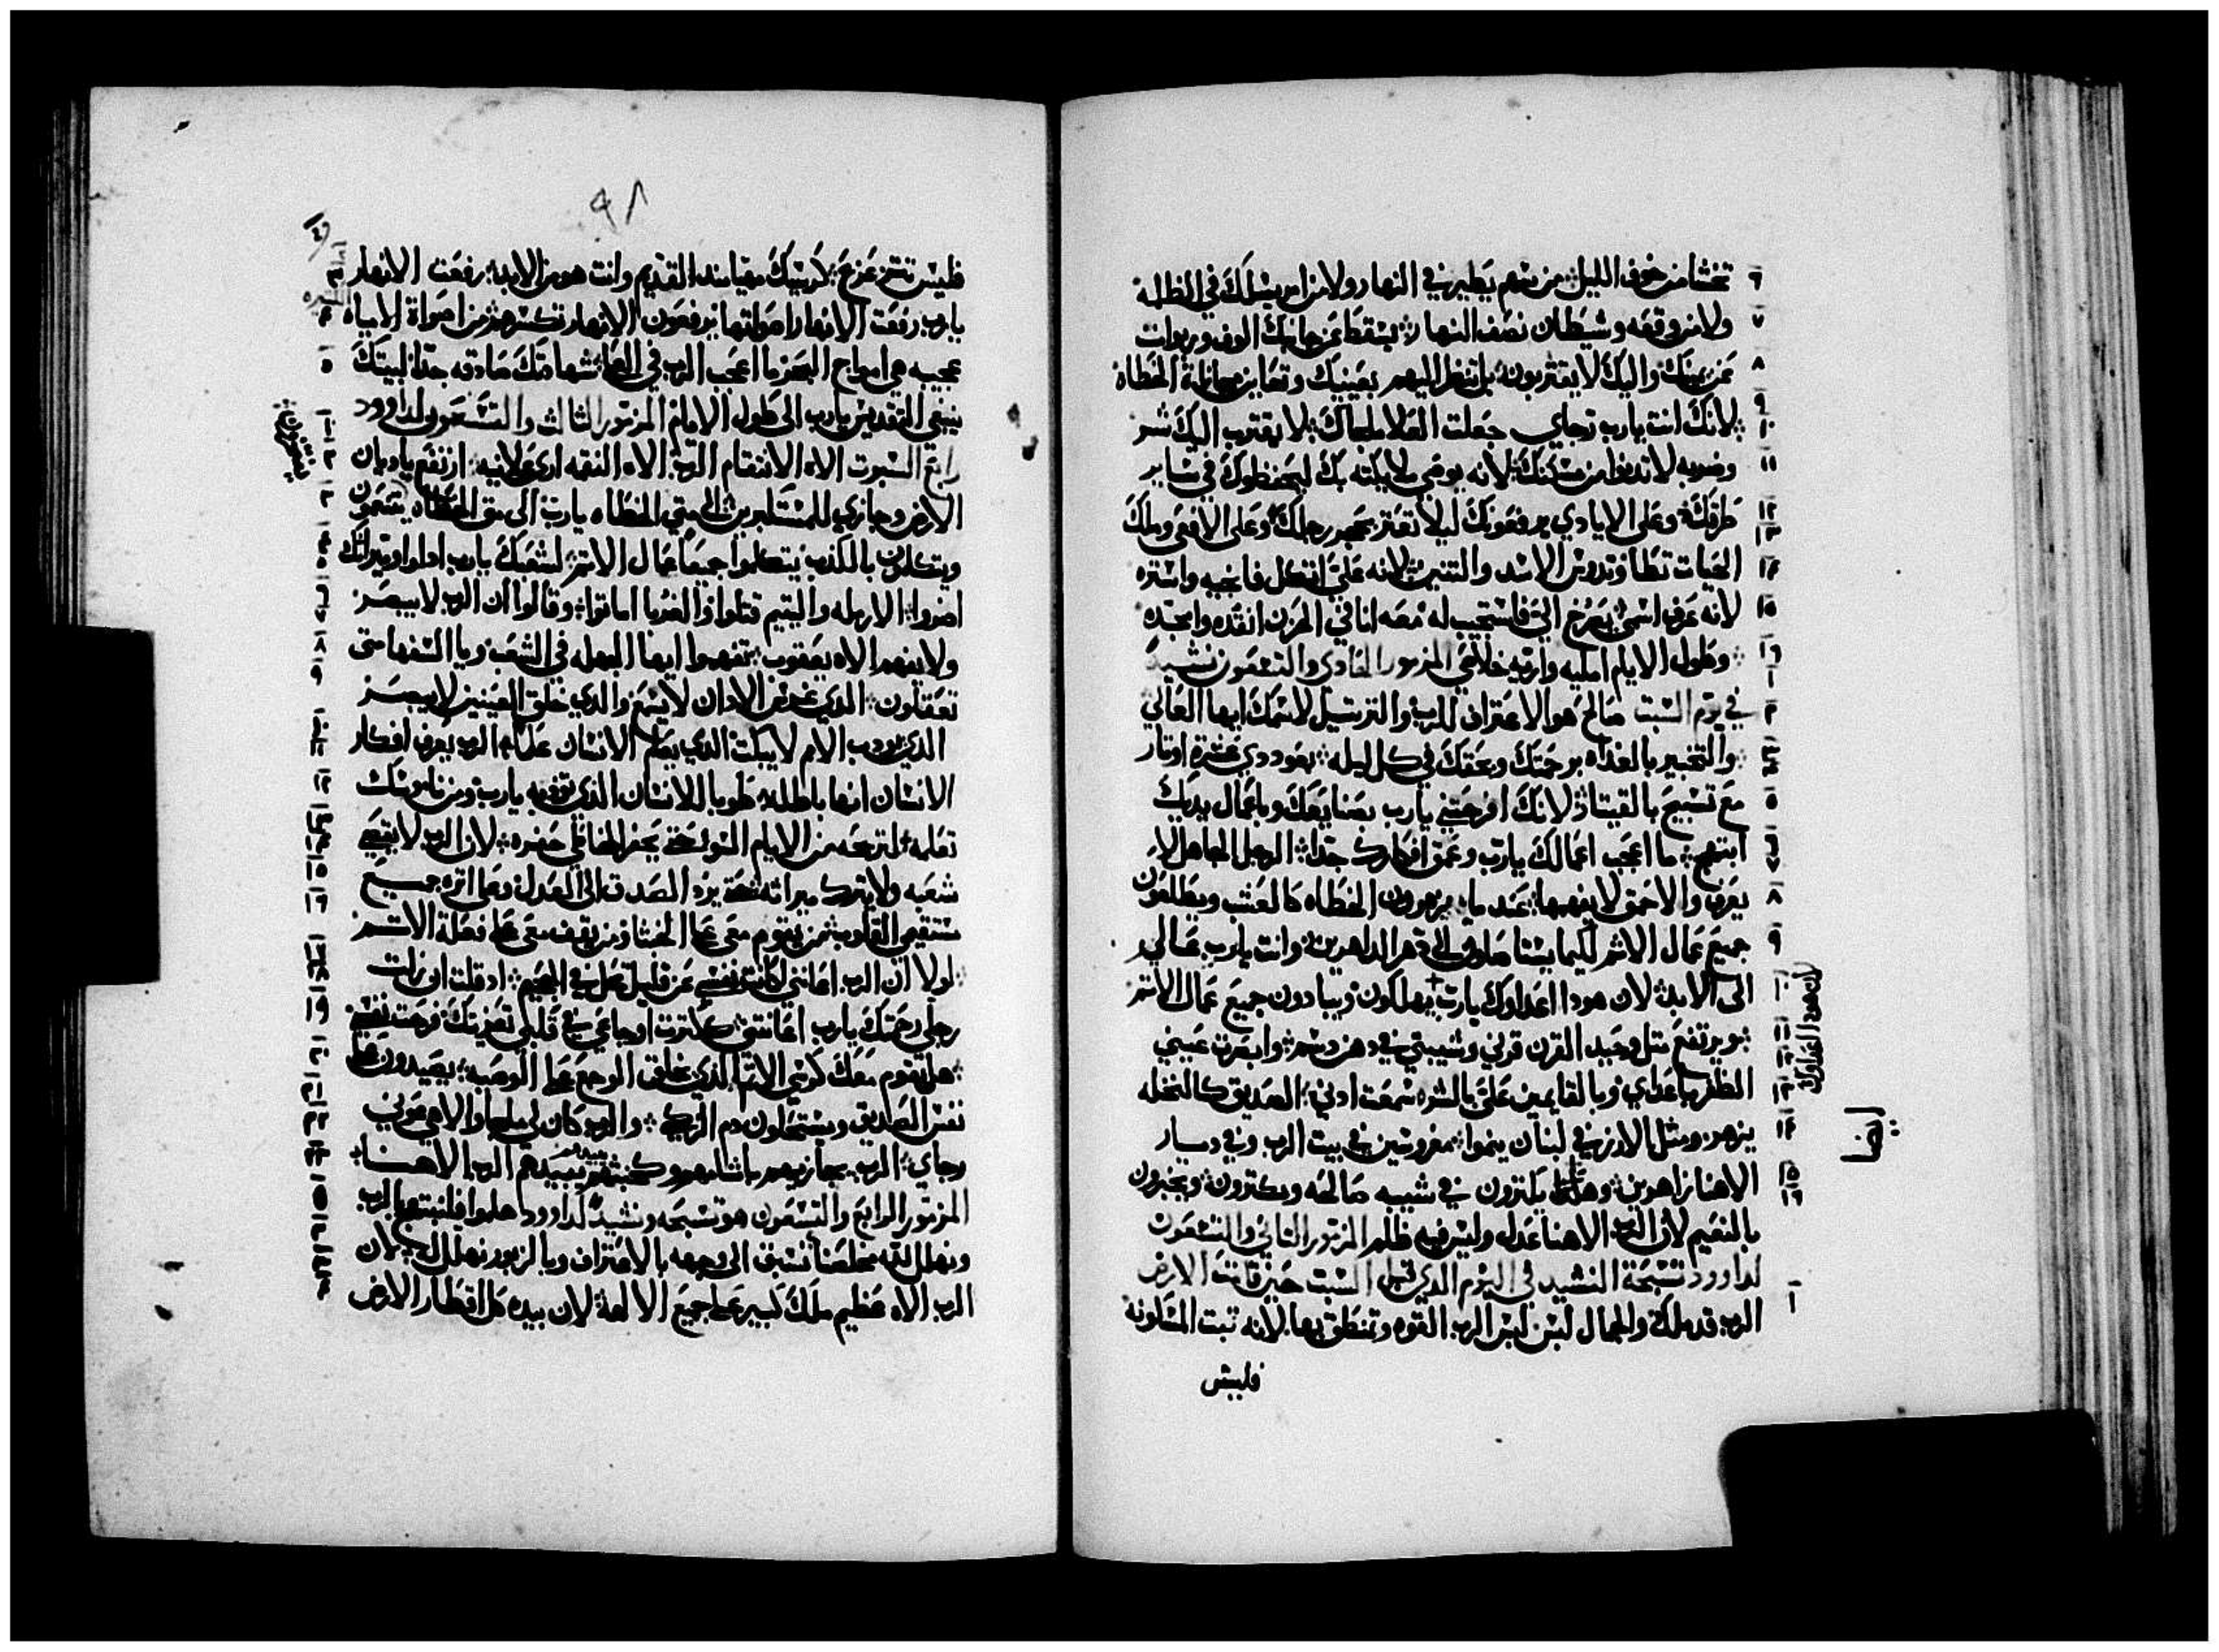 تخشا من خوف الليل من سهم يطير في النهار ولا من امر يسلك في الظلمه
ولا من وقعه وشيطان نصف النهار يسقط عن جانبك الوف وربوات
عن يمينك واليك لا يقتربون بل تنظر اليهم بعينيك وتعاين مجازاة الخطاه
لانك انت يارب رجاي جعلت العلا ملجاك لا يقترب اليك شر
وضربه لا تدنوا من مسكنك لانه يوصي ملايكته بك ليحفظوك في ساير
طرقك وعلى الايادي يرفعونك ليلا تعتر بحجر رجلك وعلى الافعى وملك
الحيات تطا وتدوس الاسد والتنين لانه علي اتكل فانجيه واستره
لانه عرف اسمي يصرخ الي فاستجيب له معه انا في الحزن انقده وامجده
وطول الايام امليه واريه خلاصي المزمور الحادي والتسعون نشيد
في يوم السبت صالح هو الاعتراف للرب والترتيل لاسمك ايها العالي
والتخبير بالغداه برحمتك وبحقك في كل ليله بعود دي عشرة اوتار
مع تسبيح بالقيتار لانك افرحتني يارب بصنايعك وباعمال يديك
ابتهج ما اعجب اعمالك يارب وعمق افكارك جدا الرجل الجاهل لا
يعرف والاحمق لا يفهمها عند ما يزهرون الخطاه كالعشب ويطلعون
جميع عمال الاتم لكيما يستاصلون الى دهر الداهرين وانت يارب عالي
الى الابد لان هودا اعداوك يارب يهلكون ويبادون جميع عمال الاتم
ويرتفع متل وحيد القرن قرني وشيبتي في دهن دسم وابصرت عيني
الظفر باعداي وبالقايمين علي بالشر سمعت ادني الصديق كالنخله
يزهر ومثل الارز في لبنان ينموا مغروسين في بيت الرب وفي ديار
الاهنا زاهرين يكترون في شيبه صالحه ويكترون ويخبرون
بالنعيم لان الرب الاهنا عدل وليس فيه ظلم المزمور التاني والتسعون
لداوود تسبحة النشيد في اليوم الدي قبل السبت حين قامت الارض
الرب قد ملك والجمال لبس لبس الرب القوه وتمنطق بها لانه تبت المسكونه
فليس
لان هودا اعداوك
ايضا
٩٨
فليس تتزعزع كرسيك مند القديم وانت هو من الابد رفعت الانهار
يارب رفعت الانهار اصواتها يرفعون الانهار من اصواة المياه
عجيبه هي امواج البحر ما اعجب الرب في شهاداتك صادقه جدا لبيتك
ينبغي التقديس يارب الى طول الايام المزمور الثالث والتسعون لداوود
رابع السبوت الاه الانتقام الرب الاه النقمه ارتفع يا ديان
الارض وجازي للمستكبرين الى متى الخطاه يارب الى متى الخطاه
ويتكلمون بالكذب يتكلموا جميع عمال الاتم لشعبك يارب ادلوا وميراتك
اضروا الارمله واليتيم قتلوا والغربا اماتوا وقالوا ان الرب لا يبصر
ولا يفهم الاه يعقوب تفهموا ايها الجهله في الشعب ويا السفها متى
تعقلون الدي غرس الادان لا يسمع والدي خلق العينين لا يبصر
الدي يودب الامم لا يبكت الدي يعلم الانسان علما الرب يعرف افكار
الانسان انها باطله طوبا للانسان الذي تودبه يارب ومن ناموسك
تعلمه لتريحه من الايام السو حتى يحفر للخاطي حفره لان الرب لا يقصي
شعبه ولا يترك ميراته حتى يرد الصدق الى العدل جميع
مستقيمي القلوب من يقوم معي على الخبثا ومن يقف معي على فعلة الاتم
لولا ان الرب اعانني لكانت نفسي عن قليل تحل في الجحيم اد قلت ان زلت
رجلي رحمتك يارب اعانتني ككترت اوجاعي في قلبي تعزيتك فرحت نفسي
هل تقوم معك كرسي الاتم الذي خلق الوجع على الوصيه يصيدون على
نفس الصديق ويستحلون دم الزكي والرب كان لي ملجا والاهي عوني
رجاي الرب يجازيهم باتامهم وكخبثهم يبيدهم الرب الاهنا
المزمور الرابع والتسعون هو تسبحه ونشيد لداوود هلموا فلنبتهج بالرب
ونهلل لله مخلصنا نسبق الى وجهه بالاعتراف وبالزبور نهلل له لان
الرب الاه عظيم ملك كبير على جميع الالهة لان بيده كل اقطار الارض